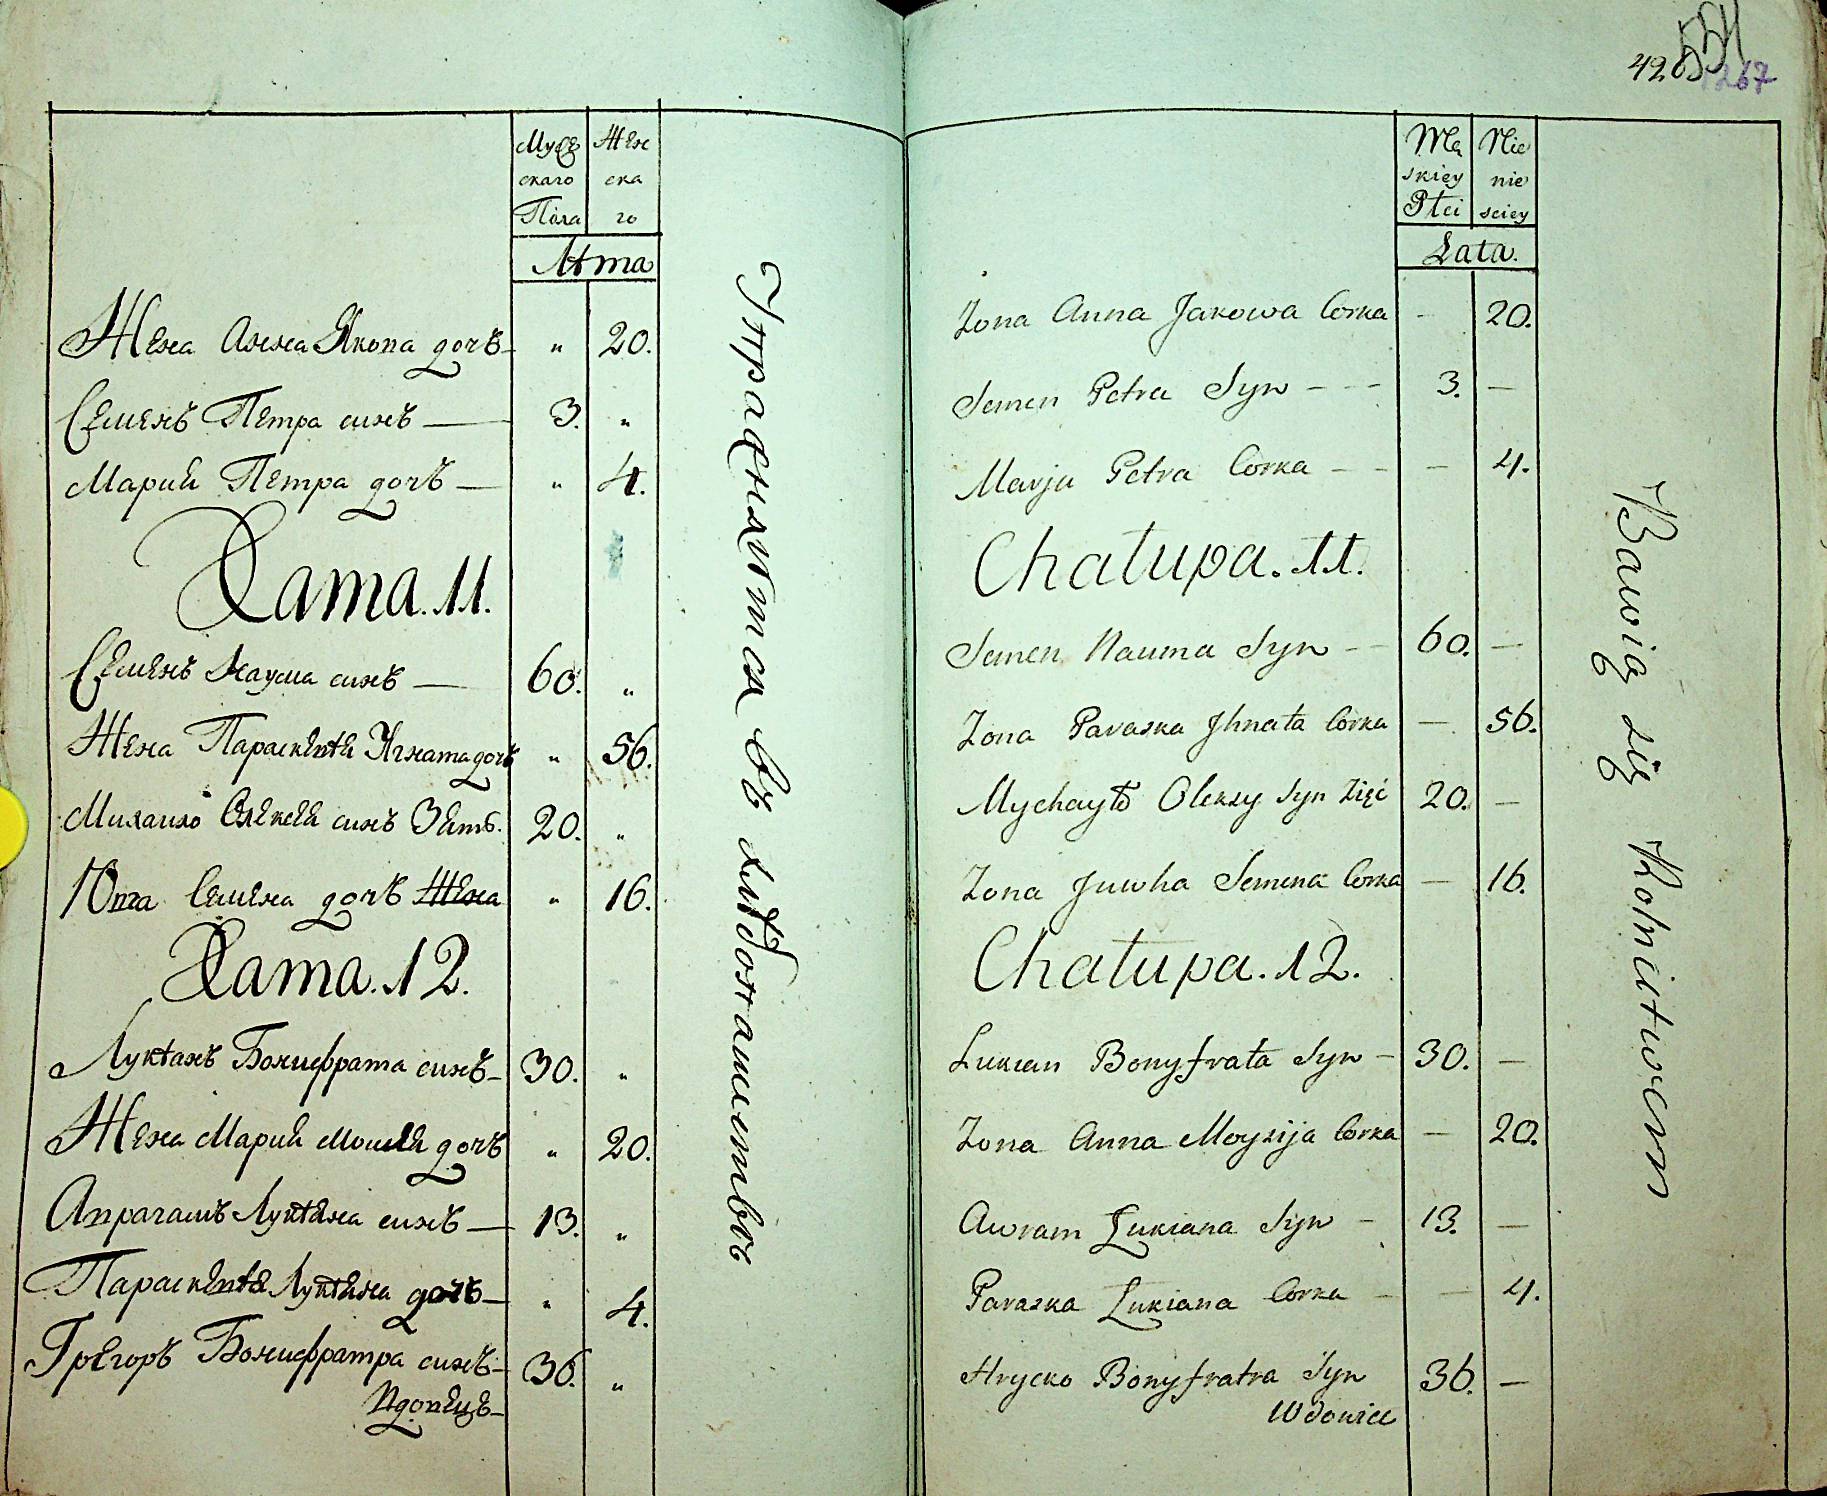 Муже Жен
скаго ска
Пола го
Лѣта
Жена Анна Якова дочь — „ 20.
Семенъ Петра синъ — 3. „
Мария Петра дочь — „ 4.
Хата. 11.
Семенъ Наума синъ — 60. „
Жена Параскевѣя Игната дочь „ 56.
Михаило Олексея синъ Зять. 20. „
Юга Семена дочь Жена „ 16.
Хата. 12.
Лукѣанъ Бонифрата синъ — 30. „
Жена Мария Моисея дочь „ 20.
Аврагамъ Лукѣяна синъ — 13. „
Параскевѣя Лукѣяна дочь — „ 4.
Грегоръ Бонифратра синъ — 36. „
Вдовецъ —
Упражняются въ хлѣбопашествѣ
428 554
267
Mę Nie
skiey nie
Płci sciey
Lata.
Zona Anna Jakowa Corka - 20.
Semen Petra Syn - - - 3. —
Marja Petra Corka - - — 4.
Chałupa. 11.
Semen Nauma Syn - - 60. —
Zona Paraska Jhnata Corka — 56.
Mychayło Olexsy Syn Zięć 20. —
Zona Juwha Semena Corka — 16.
Chałupa. 12.
Lukian Bonyfrata Syn - 30. —
Zona Anna Moyzija Corka — 20.
Awram Łukiana Syn - 13. —
Paraska Łukiana Corka - — 4.
Hrycko Bonyfratra Syn 36. —
Wdowiec
Bawią się Rolnictwem